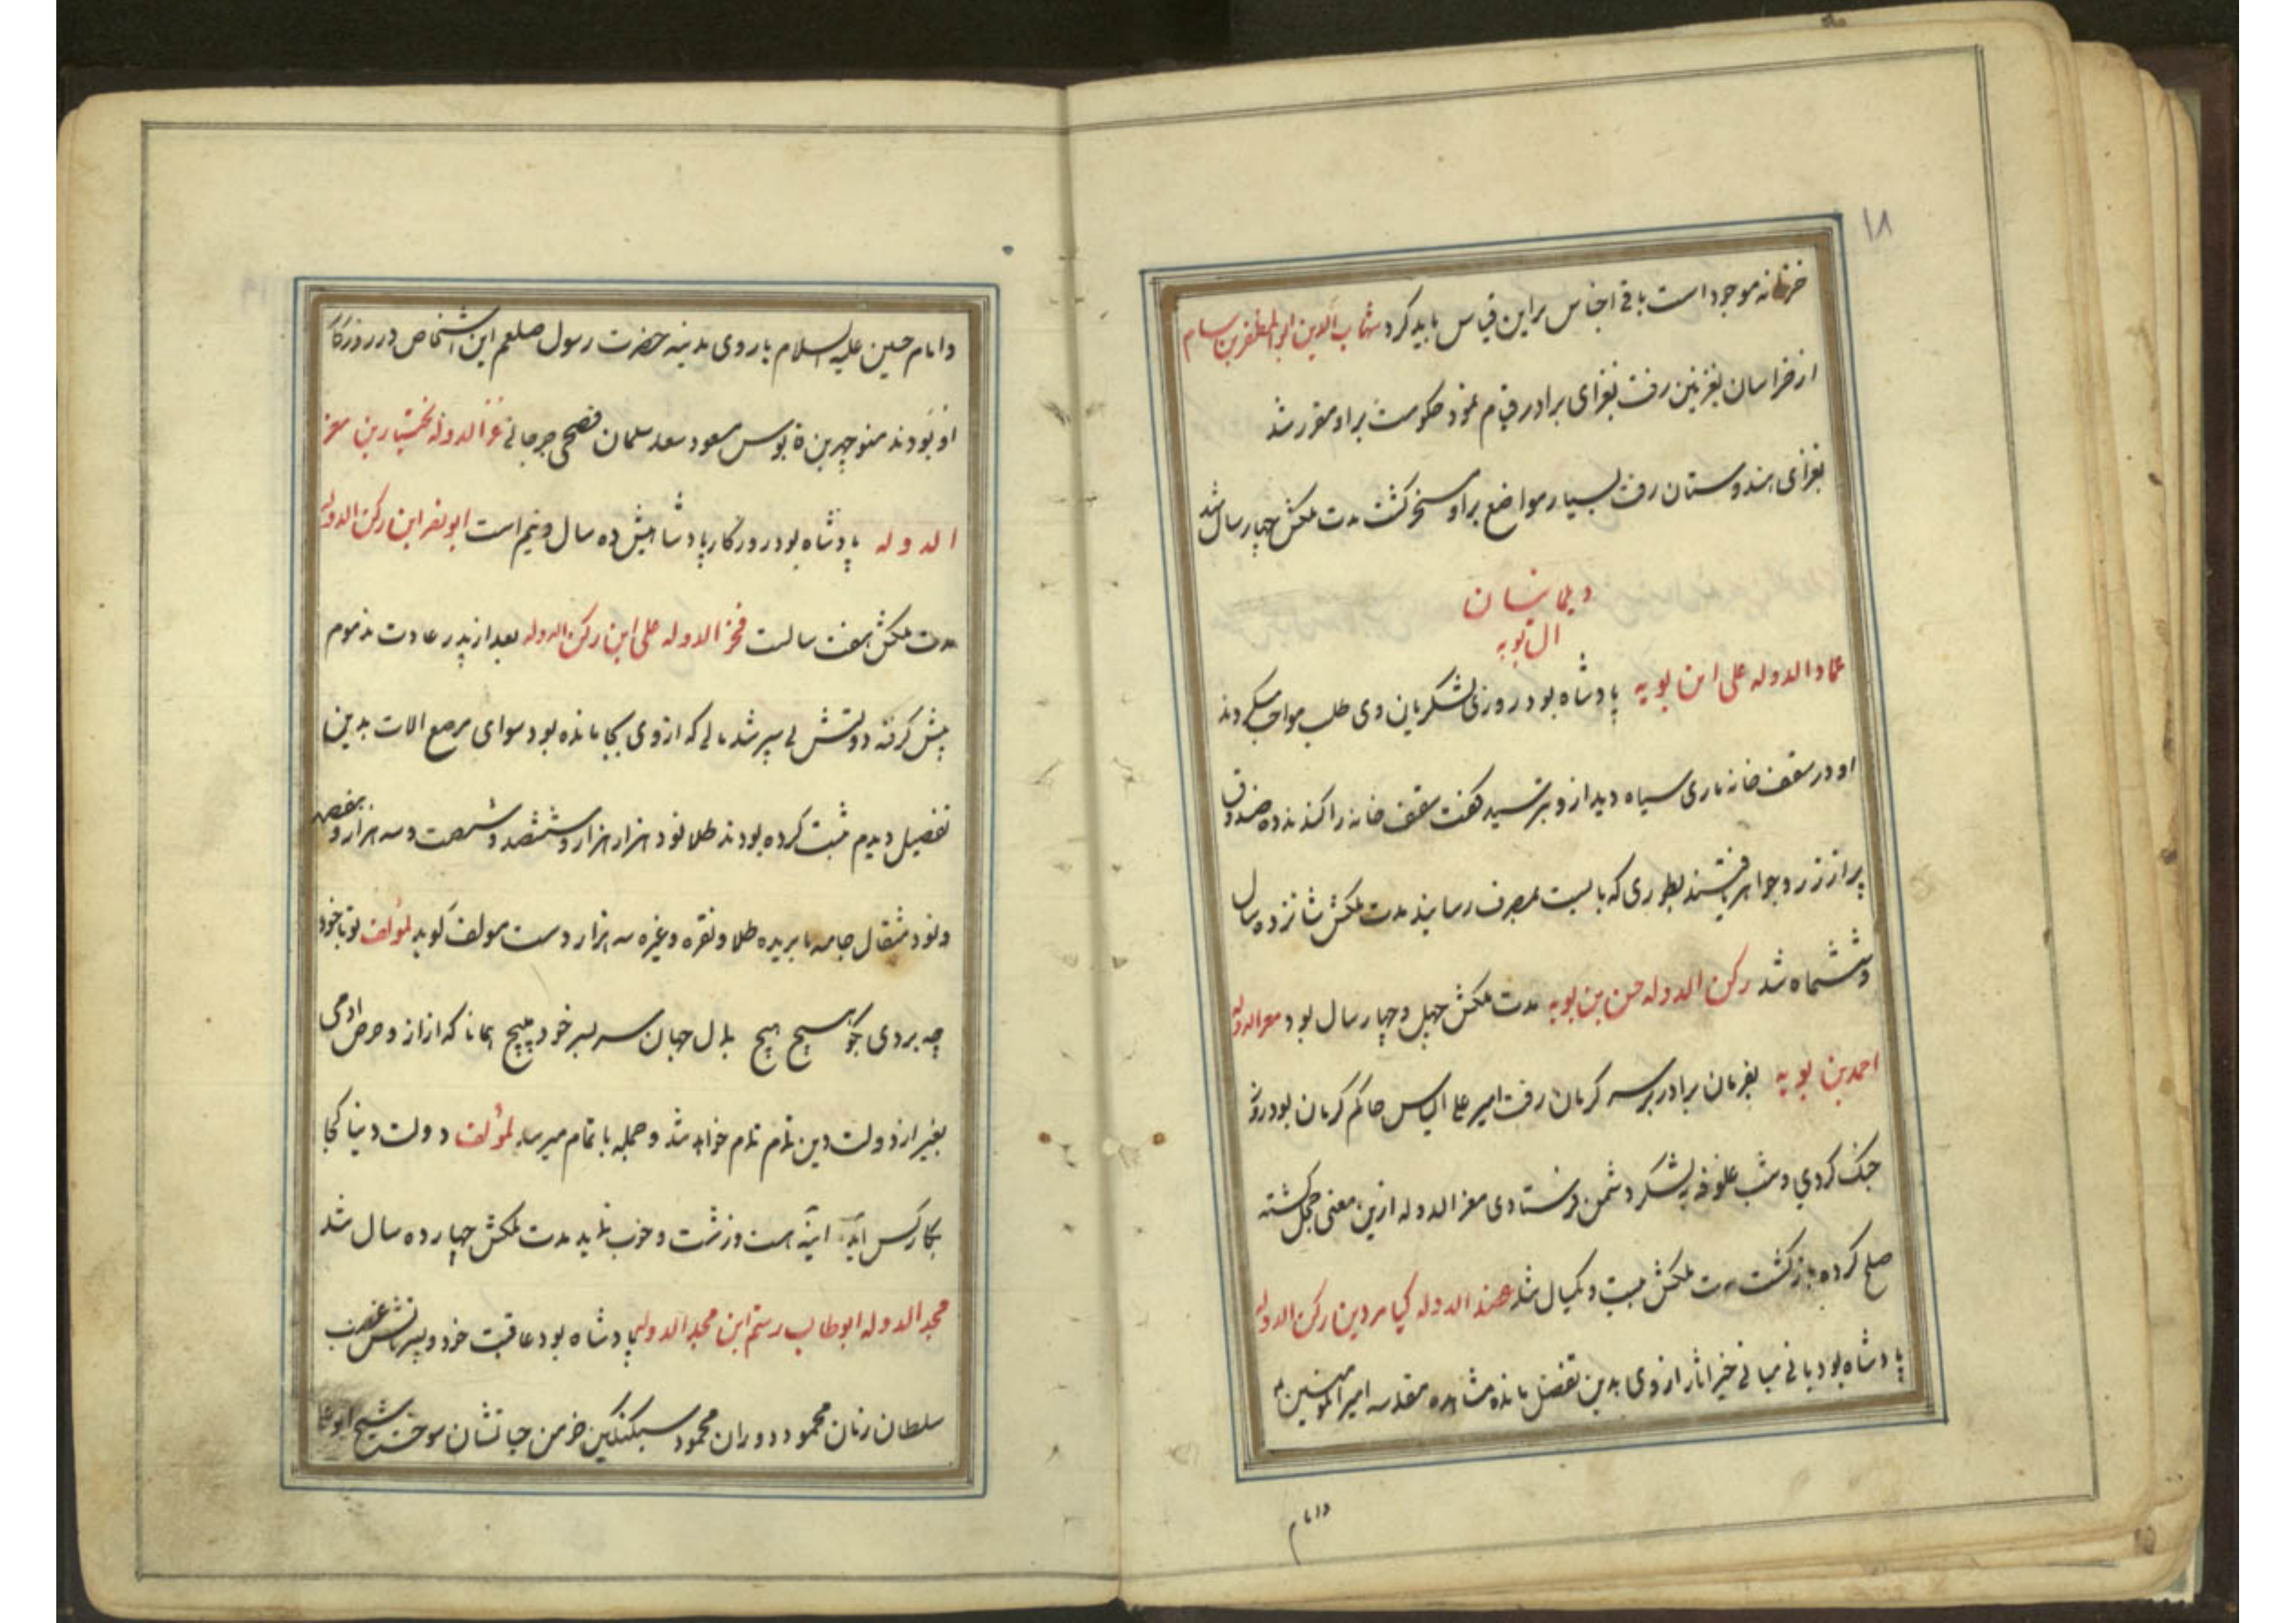 ۱۸
خزانه موجود است باقی اجناس براین قیاس باید کرد شهاب الدین ابوالمظفر بن سام
از خراسان بغزنین رفت بغزای برادر قیام نمود حکومت براو مقرر شد
بغزای هندوستان رفت بسیار مواضع براو مسخر کشت مدت ملکش چهار سال شد
دیلمانسان
ال بویه
عماد الدوله علی ابن بویه پادشاه بود روزی لشکریان وی طلب مواجب میکردند
او در سقف خانه ماری سیاه دید ازو بترسید کفت سقف خانه را کندند ده صندوق
پر از زر و جواهر یافتند بطوری که بایست بمصرف رسانید مدت ملکش شانزده سال
و ششماه شد رکن الدوله حسن بن بویه مدت ملکش چهل و چهار سال بود معز الدوله
احمد بن بویه بفرمان برادر بر سر کرمان رفت امیر علی الیاس حاکم کرمان بود روز
جنک کردی و شب علوفه به لشکر دشمن فرستادی معز الدوله ازین معنی خجل کشته
صلح کرده باز کشت مدت ملکش بیست و یکسال شد عضد الدوله کیا مردین رکن الدوله
پادشاه بود بانی مبانی خیر اثار ازوی بدین تفضل مانده مشاهده مقدسه امیر المومنین
وامام
وامام حسین علیه السلام باروی مدینه حضرت رسول صلعم این اشخاص در روزکار
او بودند منوچهر بن قابوس مسعود سعد سلمان فصحی جرجانی عز الدوله بختیار بن معز
الدوله پادشاه بود روزکار پادشاهیش ده سال و نیم است ابو نصر ابن رکن الدوله
مدت ملکش هفت سالست فخر الدوله علی ابن رکن الدوله بعد از پدر عادت مذموم
پیش کرفته دولتش لی سپر شد مالی که ازوی بجا مانده بود سوای مرصع الات بدین
تفصیل دیدم ثبت کرده بودند طلا نود هزار هزار و ششصد و شصت و سه هزار و هفتصد
ونود مثقال جامه نابریده طلا و نقره و غیره سه هزار دست مولف کوید لمؤلف تو با خود
چه بردی بکو هیچ هیچ بمال جهان سر بسر خود مپیچ همانا که از از و حرص ادمی
بغیر از دولت دین تمام تمام خواهد شد و جمله باتمام میرسد لمؤلف دولت دنیا کجا
بکار کس اید اینه است و زشت و خوب نماید مدت ملکش چهارده سال شد
مجد الدوله ابوطالب رستم ابن مجد الدوله پادشاه بود عاقبت خود و پسرانش غضب
سلطان زمان محمود دوران محمود سبکتکین خرمن حیاتشان سوخت شیخ ابوعلی